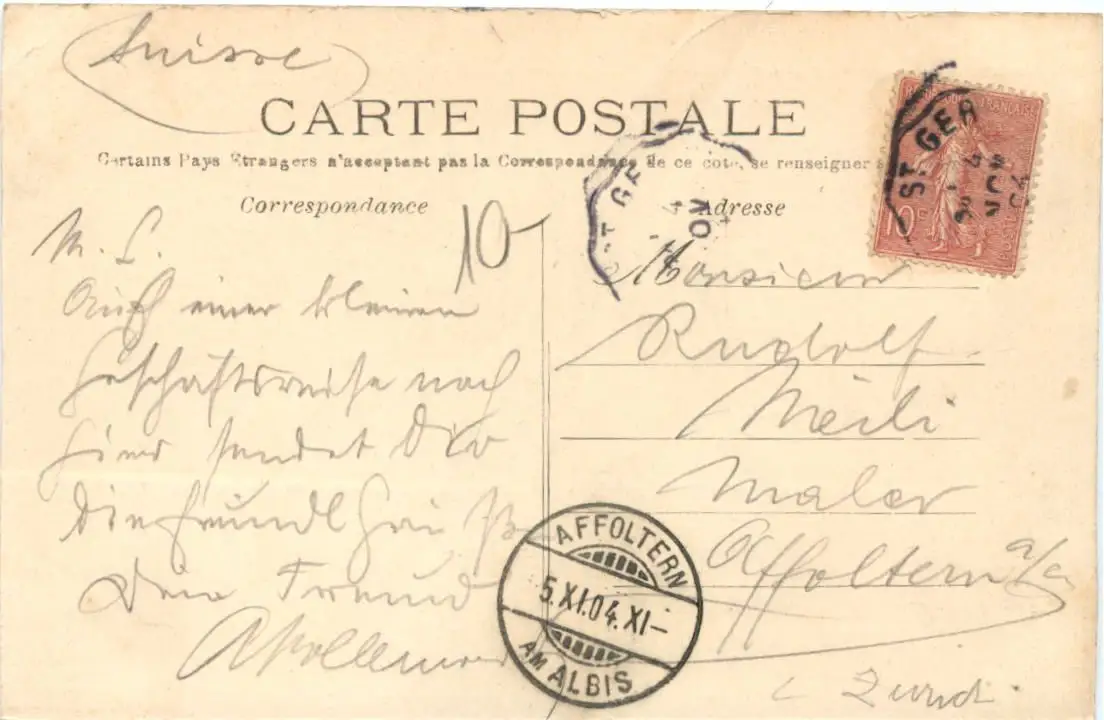 Suisse
CARTE POSTALE
Certains Pays Etrangers n'acceptent pas la Correspondance de ce coté, se renseigner
Correspondance
Adresse
REPUBLIQUE FRANÇAISE
10c
POSTES
ST GER
4
NOV
04
ST GE
4
NOV
10
M. L.
Auf einer kleinen
Geschäftsreise nach
hier sendet Dir
die freundl
Dein Freund
Monsieur
Rudolf
Meili
Maler
Affoltern a/A
Zürich
AFFOLTERN
5.XI.04.XI–
AM ALBIS